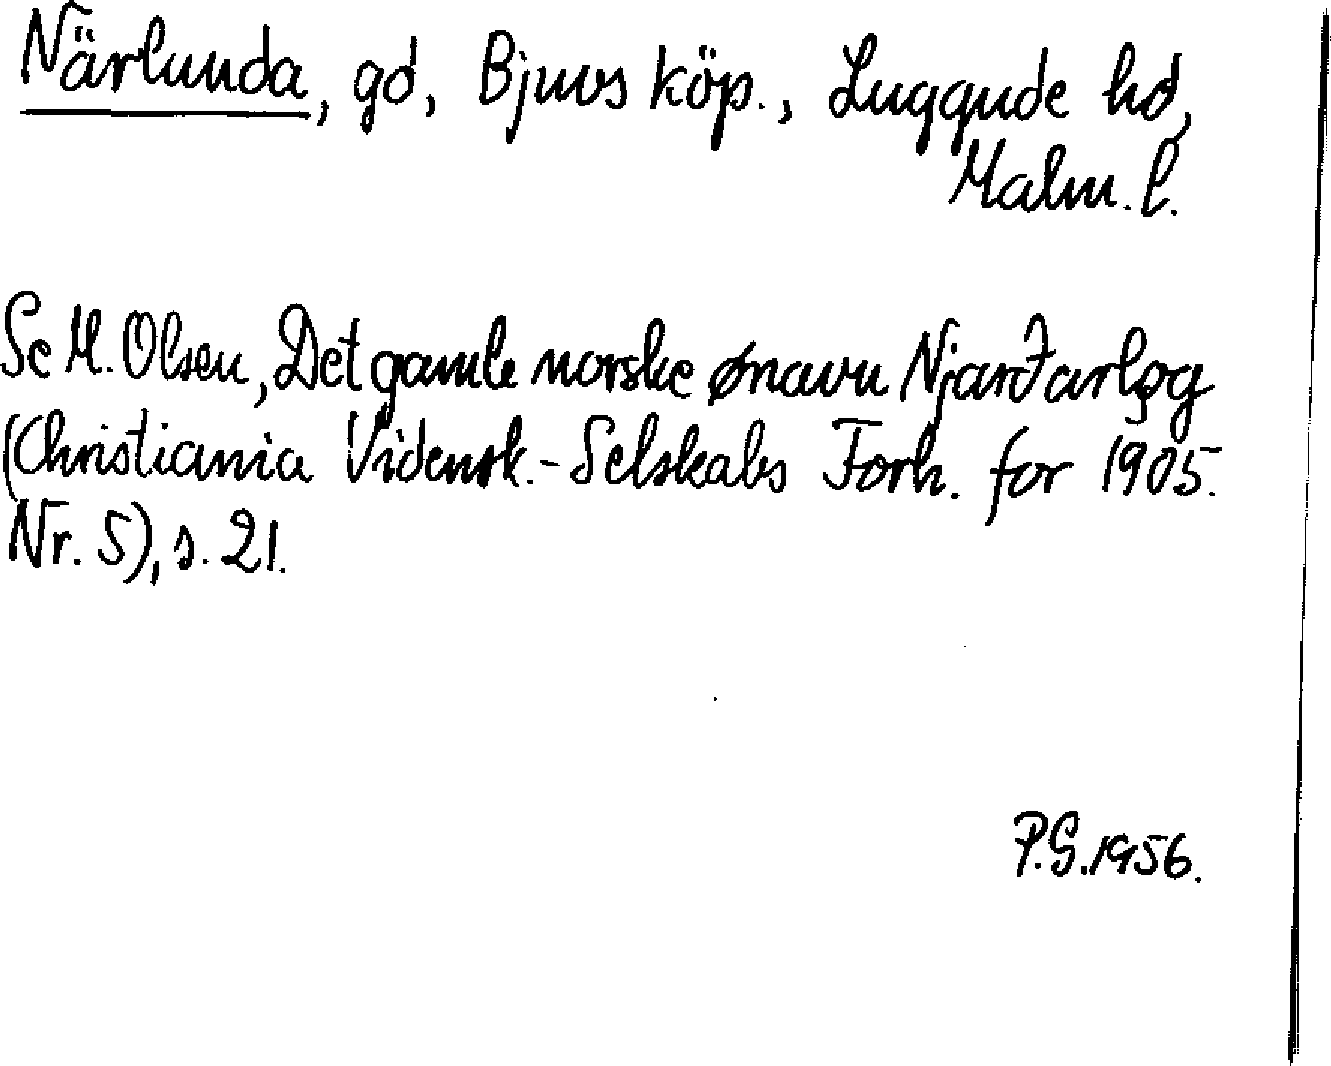 Närlunda, gd, Bjuvs köp., Luggude hd,
Malm. l.
Se M. Olsen, Det gamle norske ønavn Njarðarlǫg
(Christiania Vidensk.-Selskabs Forh. for 1905.
Nr. 5), s. 21.
P.G. 1956.